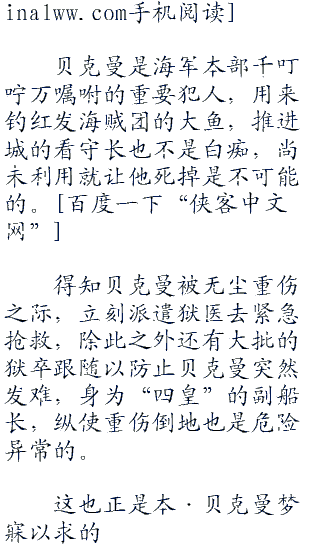 ina1ww.com手机阅读]
贝克曼是海军本部千叮
咛万嘱咐的重要犯人，用来
钓红发海贼团的大鱼，推进
城的看守长也不是白痴，尚
未利用就让他死掉是不可能
的。[百度一下“侠客中文
网”]
得知贝克曼被无尘重伤
之际，立刻派遣狱医去紧急
抢救，除此之外还有大批的
狱卒跟随以防止贝克曼突然
发难，身为“四皇”的副船
长，纵使重伤倒地也是危险
异常的。
这也正是本·贝克曼梦
寐以求的